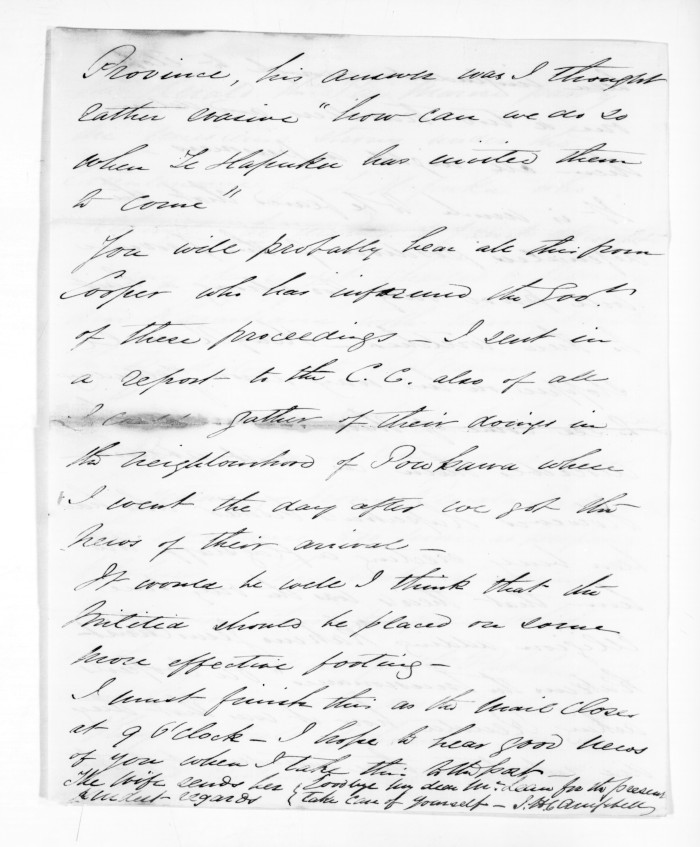 Province, his answer was I thought
rather evasive "how can we do so
when Te Hapuku has invited them
to come"
You will probably hear all this from
Cooper who has informed the Govt.
of these proceedings - I sent in
a report to the C. C. also of all
I could gather of their doings in
the neighbourhood of Poukawa where
I went the day after we got the
news of their arrival -
It would be well I think that the
Militia should be placed on some
more effective footing -
I must finish this as the mail closes
at 9 O'Clock - I hope to hear good news
of you when I take this to the post -
The Wife sends her
kindest regards
Goodbye my dear McLean for the present
take care of yourself - S. H. Campbell